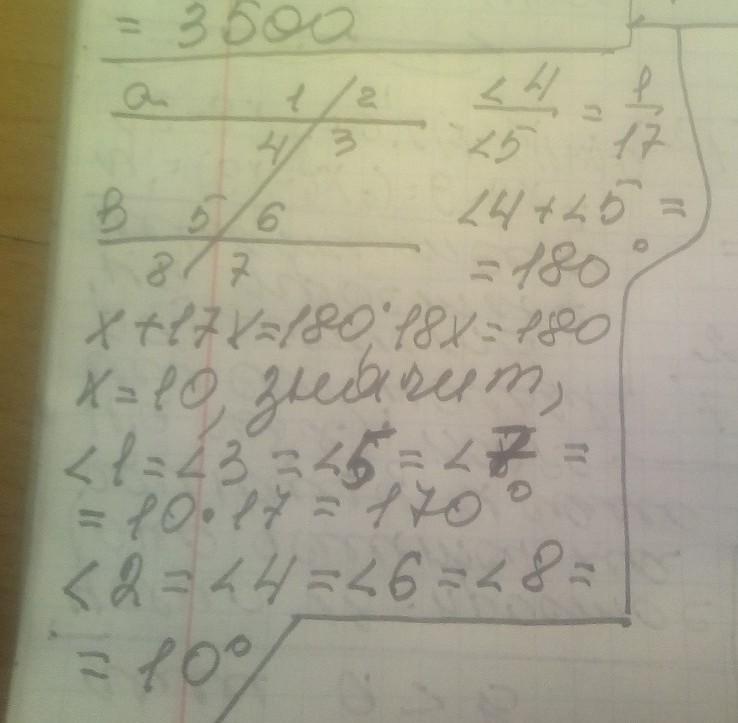 = 3500
a 1 2
4 3
в 5 6
8 7
<4/<5 = 1/17
<4+<5 =
= 180°
x+17x=180; 18x=180
x=10, значит,
<1=<3=<5=<7=
= 10·17 = 170°
<2=<4=<6=<8=
= 10°